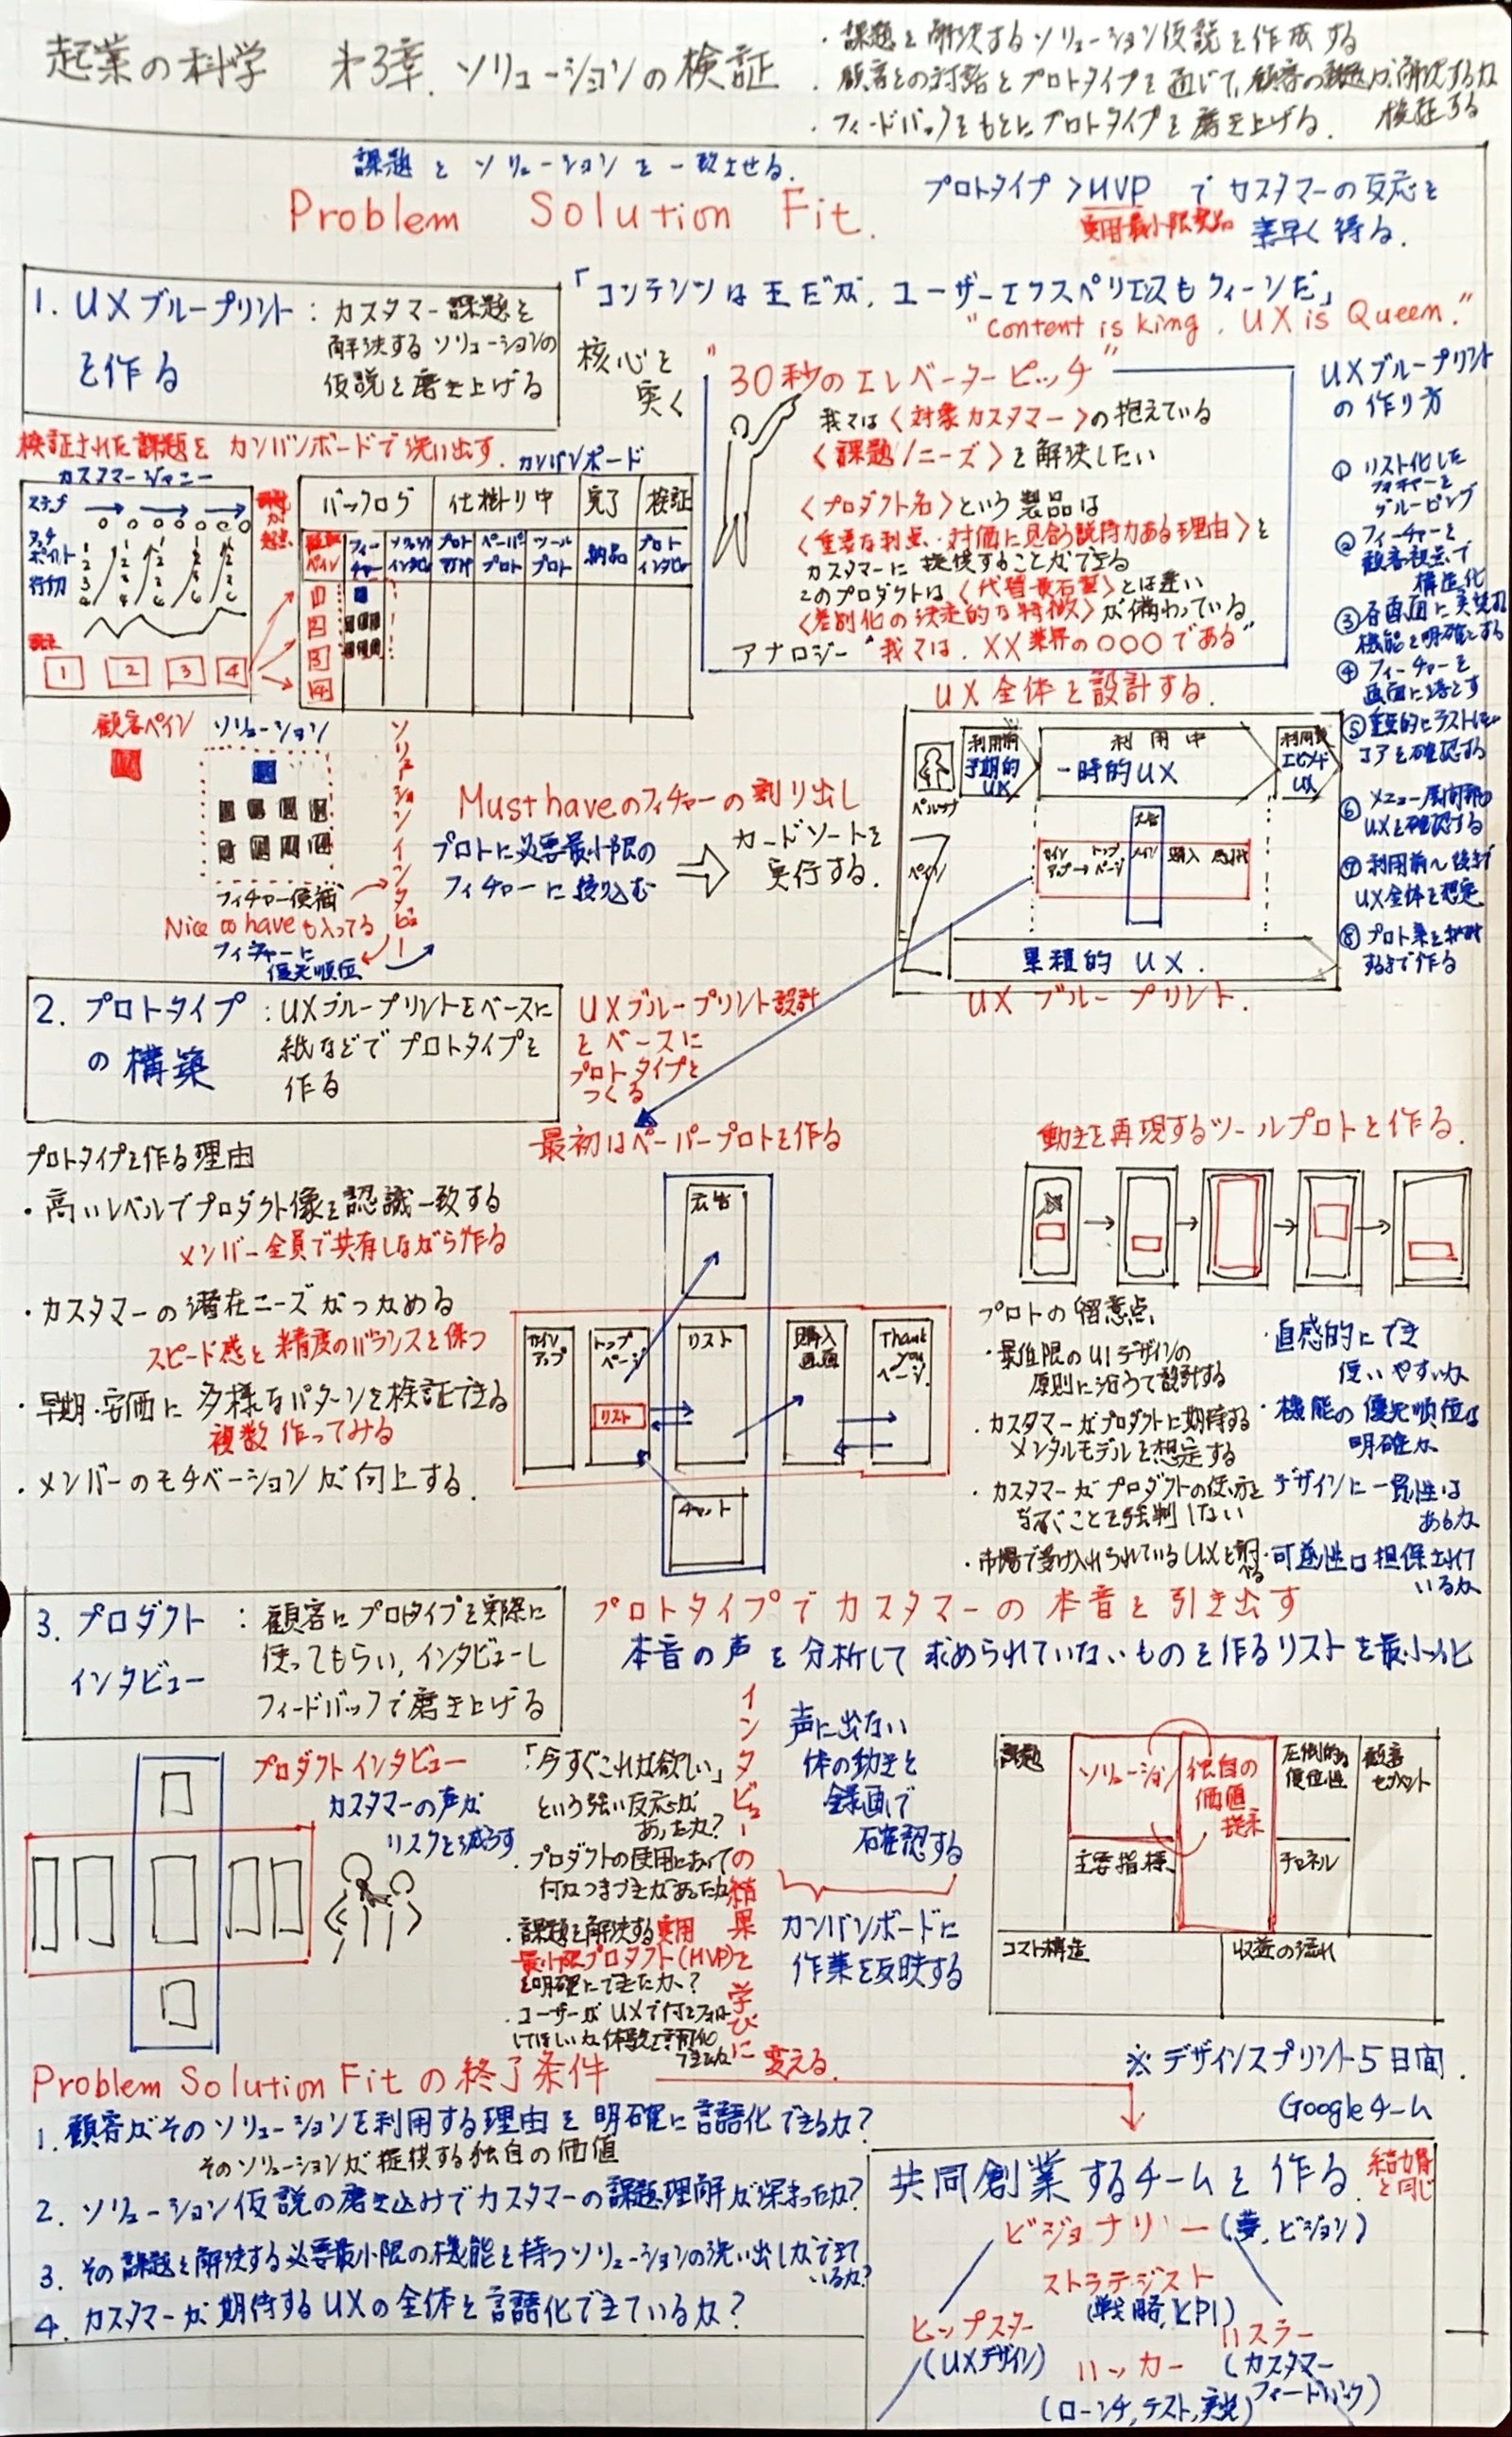 起業の科学 第3章. ソリューションの検証
・課題を解決するソリューション仮説を作成する
・顧客との対話とプロトタイプを通じて、顧客の課題が解決するか
検証する
・フィードバックをもとにプロトタイプを磨き上げる.
課題とソリューションを一致させる.
Problem Solution Fit.
プロトタイプ > MVP でカスタマーの反応を
実用最小限製品 素早く得る.
1. UXブループリント
を作る
: カスタマー課題を
解決するソリューションの
仮説を磨き上げる
「コンテンツは王だが、ユーザーエクスペリエンスもクィーンだ」
"Content is king. UX is Queen."
核心を
突く
"30秒のエレベーターピッチ"
我々は〈対象カスタマー〉の抱えている
〈課題/ニーズ〉を解決したい
〈プロダクト名〉という製品は
〈重要な利点・対価に見合う説得力ある理由〉を
カスタマーに提供することができる
このプロダクトは〈代替最右翼〉とは違い
〈差別化の決定的な特徴〉が備わっている
アナロジー "我々は、XX業界の○○○である"
UXブループリント
の作り方
① リスト化した
フィーチャーを
グルーピング
② フィーチャーを
顧客視点で
構造化
③ 各画面に実装
機能を明確にする
④ フィーチャーを
画面に落とす
⑤ 重点的にテストしたい
コアを確認する
⑥ メニュー展開部の
UXを確認する
⑦ 利用前〜後まで
UX全体を想定
⑧ プロト案を
するまで作る
検証された課題をカンバンボードで洗い出す.
カスタマージャーニー
ステージ
タッチ
ポイント
行動
1 2 3 4
カンバンボード
バックログ 仕掛り中 完了 検証
課題
ペイン
フィーチャー
ソリューション
インタビュー
プロト
ペーパー
プロト
ツール
プロト
納品
プロト
インタビュー
1
2
3
4
顧客ペイン ソリューション
フィチャー候補
Nice to haveも入ってる
フィチャーに
優先順位
ソリューションインタビュー
Must haveのフィチャーの割り出し
プロトに必要最小限の
フィチャーに絞り込む
カードソートを
実行する.
UX全体を設計する.
ペルソナ
利用前
予期的
UX
利用中
一時的UX
利用後
エピソード
UX
ペイン
広告
サイン
アップ→
トップ
ページ
メイン
購入
累積的UX.
UXブループリント.
2. プロトタイプ
の構築
: UXブループリントをベースに
紙などでプロトタイプを
作る
UXブループリント設計
をベースに
プロトタイプを
つくる
プロトタイプを作る理由
・高いレベルでプロダクト像を認識一致する
メンバー全員で共有しながら作る
・カスタマーの潜在ニーズがつかめる
スピード感と精度のバランスを保つ
・早期・安価に多様なパターンを検証できる
複数作ってみる
・メンバーのモチベーションが向上する.
最初はペーパープロトを作る
広告
サイン
アップ
トップ
ページ
リスト
リスト
購入
画面
Thank
you
ページ.
チャット
動きを再現するツールプロトを作る.
プロトの留意点
・最低限のUIデザインの
原則に沿って設計する
・カスタマーがプロダクトに期待する
メンタルモデルを想定する
・カスタマーがプロダクトの使い方を
学ぶことを強制しない
・市場で受け入れられているUXを
・直感的にでき
使いやすいか
・機能の優先順位は
明確か
デザインに一貫性は
あるか
・可逆性は担保されて
いるか
3. プロダクト
インタビュー
: 顧客にプロトタイプを実際に
使ってもらい、インタビューし
フィードバックで磨き上げる
プロトタイプでカスタマーの本音を引き出す
本音の声を分析して求められていないものを作るリストを最小化
プロダクトインタビュー
カスタマーの声が
リスクを減らす
「今すぐこれが欲しい」
という強い反応が
あったか?
・プロダクトの使用において
何かつまづきがあったか
・課題を解決する実用
最小限プロダクト(MVP)を
明確にできたか?
・ユーザーがUXで何をフォロー
してほしいか体験を言語化
できたか
インタビューの結果を学びに変える.
声に出ない
体の動きを
録画で
確認する
カンバンボードに
作業を反映する
課題
ソリューション
独自の
価値
提案
圧倒的な
優位性
顧客
セグメント
主要指標
チャネル
コスト構造
収益の流れ
※デザインスプリント5日間.
Googleチーム
Problem Solution Fitの終了条件
1. 顧客がそのソリューションを利用する理由を明確に言語化できるか?
そのソリューションが提供する独自の価値
2. ソリューション仮説の磨き込みでカスタマーの課題理解が深まったか?
3. その課題を解決する必要最小限の機能を持つソリューションの洗い出しができて
いるか?
4. カスタマーが期待するUXの全体を言語化できているか?
共同創業するチームを作る. 結婚
と同じ
ビジョナリー(夢、ビジョン)
ストラテジスト
(戦略、KPI)
ヒップスター
(UXデザイン)
ハッカー
(ローンチ,テスト,実装)
ハスラー
(カスタマー
フィードバック)